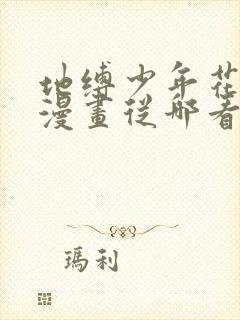 地缚少年花
漫畫從那看
瑪利